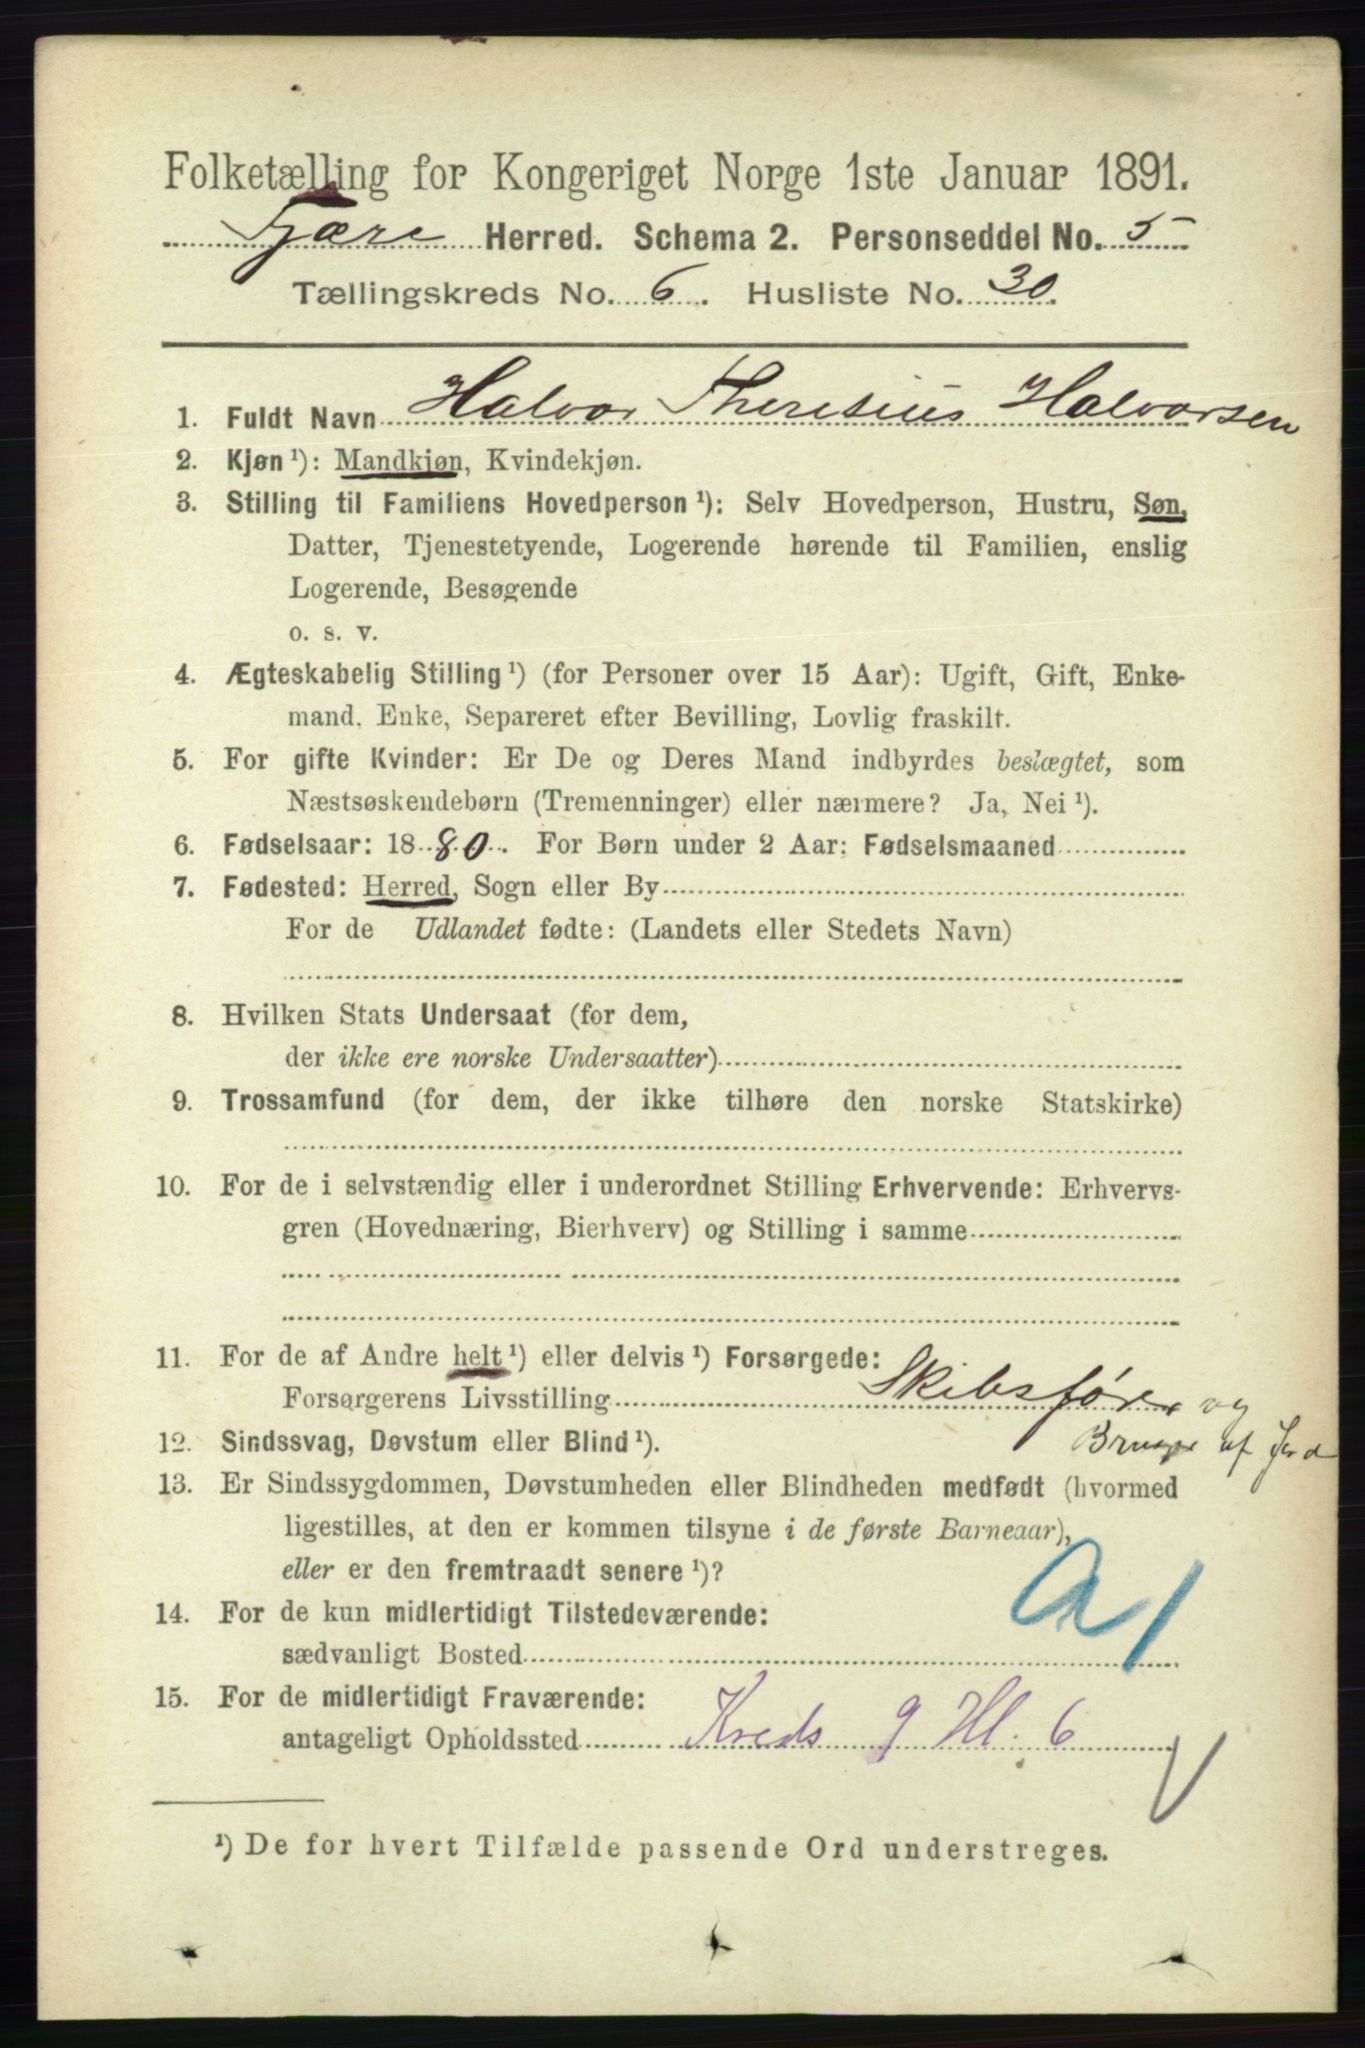 Folketælling for Kongeriget Norge 1ste Januar 1891.
Fjære Herred. Schema 2. Personseddel No. 5
Tællingskreds No. 6. Husliste No. 30.
1. Fuldt Navn Halvor Theresius Halvorsen
2. Kjøn ¹): Mandkjøn, Kvindekjøn.
3. Stilling til Familiens Hovedperson ¹): Selv Hovedperson, Hustru, Søn,
Datter, Tjenestetyende, Logerende hørende til Familien, enslig
Logerende, Besøgende
o. s. v.
4. Ægteskabelig Stilling ¹) (for Personer over 15 Aar): Ugift, Gift, Enke-
mand, Enke, Separeret efter Bevilling, Lovlig fraskilt.
5. For gifte Kvinder: Er De og Deres Mand indbyrdes beslægtet, som
Næstsøskendebørn (Tremenninger) eller nærmere? Ja, Nei ¹).
6. Fødselsaar: 1880. For Børn under 2 Aar: Fødselsmaaned
7. Fødested: Herred, Sogn eller By
For de Udlandet fødte: (Landets eller Stedets Navn)
8. Hvilken Stats Undersaat (for dem,
der ikke ere norske Undersaatter)
9. Trossamfund (for dem, der ikke tilhøre den norske Statskirke)
10. For de i selvstændig eller i underordnet Stilling Erhvervende: Erhvervs-
gren (Hovednæring, Bierhverv) og Stilling i samme
11. For de af Andre helt ¹) eller delvis ¹) Forsørgede:
Forsørgerens Livsstilling Skibsfører og
12. Sindssvag, Døvstum eller Blind ¹). Bruger af Jord
13. Er Sindssygdommen, Døvstumheden eller Blindheden medfødt (hvormed
ligestilles, at den er kommen tilsyne i de første Barneaar),
eller er den fremtraadt senere ¹)?
14. For de kun midlertidigt Tilstedeværende:
sædvanligt Bosted
15. For de midlertidigt Fraværende:
antageligt Opholdssted Kreds 9 Hl. 6
¹) De for hvert Tilfælde passende Ord understreges.